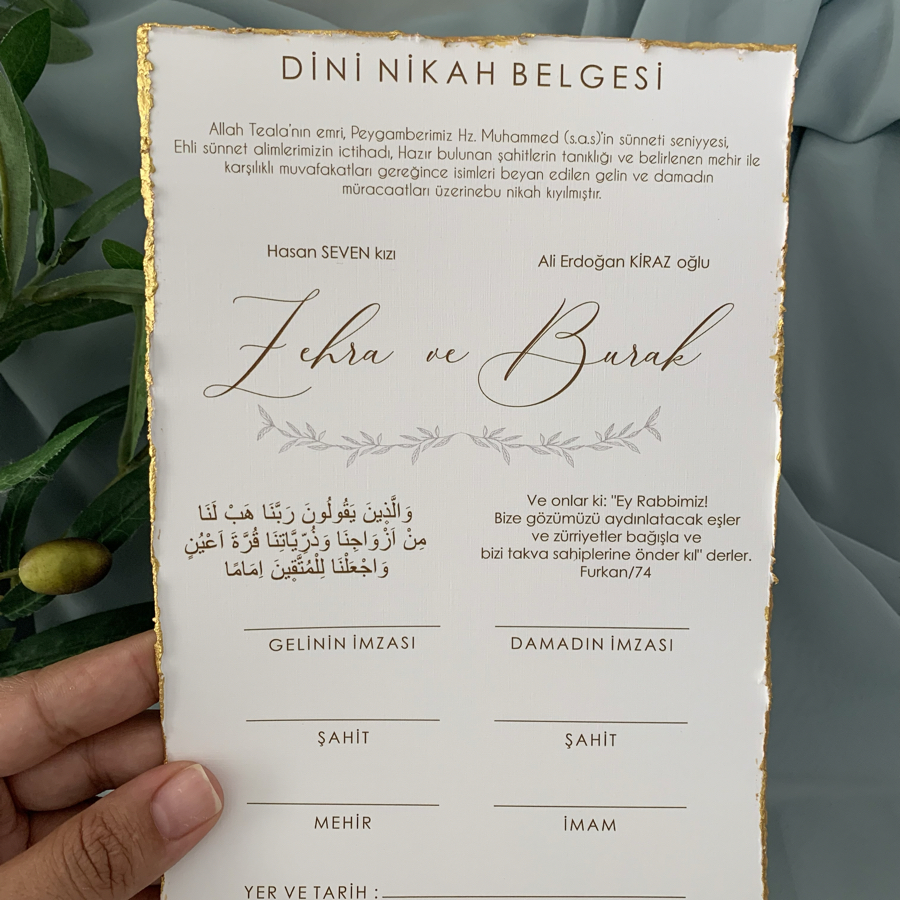 DİNİ NİKAH BELGESİ
Allah Teala'nın emri, Peygamberimiz Hz. Muhammed (s.a.s)'in sünneti seniyyesi,
Ehli sünnet alimlerimizin ictihadı, Hazır bulunan şahitlerin tanıklığı ve belirlenen mehir ile
karşılıklı muvafakatları gereğince isimleri beyan edilen gelin ve damadın
müracaatları üzerinebu nikah kıyılmıştır.
Hasan SEVEN kızı
Ali Erdoğan KİRAZ oğlu
Zehra ve Burak
وَالَّذِينَ يَقُولُونَ رَبَّنَا هَبْ لَنَا
مِنْ اَزْوَاجِنَا وَذُرِّيَّاتِنَا قُرَّةَ اَعْيُنٍ
وَاجْعَلْنَا لِلْمُتَّقِينَ اِمَامًا
Ve onlar ki: "Ey Rabbimiz!
Bize gözümüzü aydınlatacak eşler
ve zürriyetler bağışla ve
bizi takva sahiplerine önder kıl" derler.
Furkan/74
GELİNİN İMZASI
DAMADIN İMZASI
ŞAHİT
ŞAHİT
MEHİR
İMAM
YER VE TARİH :